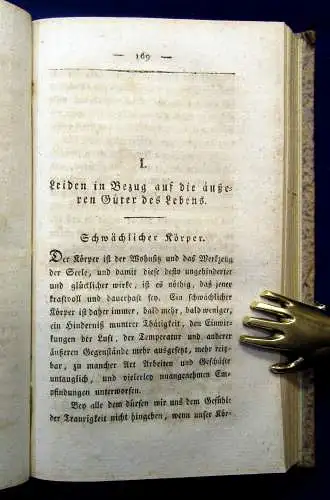 — 169 —
I.
Leiden in Bezug auf die äuße-
ren Güter des Lebens.
Schwächlicher Körper.
Der Körper ist der Wohnsitz und das Werkzeug
der Seele, und damit diese desto ungehinderter
und glücklicher wirke, ist es nöthig, daß jener
kraftvoll und dauerhaft sey. Ein schwächlicher
Körper ist daher immer, bald mehr, bald weniger,
ein Hinderniß munterer Thätigkeit, den Einwir-
kungen der Luft, der Temperatur und anderer
äußeren Gegenstände mehr ausgesetzt, mehr reitz-
bar, zu mancher Art Arbeiten und Geschäfte
untauglich, und vielerley unangenehmen Em-
pfindungen unterworfen.
Bey alle dem dürfen wir uns dem Gefühle
der Traurigkeit nicht hingeben, wenn unser Kör-